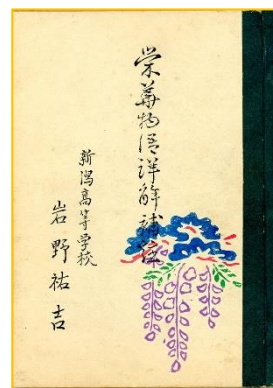 栄華物語詳解補註
新潟高等学校
岩野祐吉